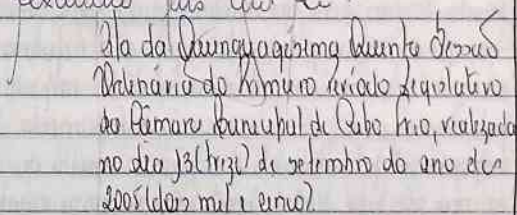 Ata da Quinquagésima Quinta Sessão
Ordinária do Primeiro Período Legislativo
da Câmara Municipal de Cabo Frio, realizada
no dia 13 (treze) de setembro do ano de
2005 (dois mil e cinco).